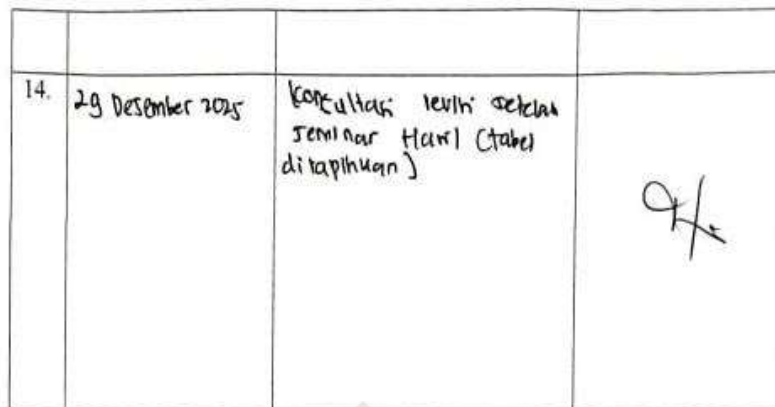 14.
29 Desember 2025
Konsultasi revisi setelah
seminar Hasil (tabel
dirapihkan)